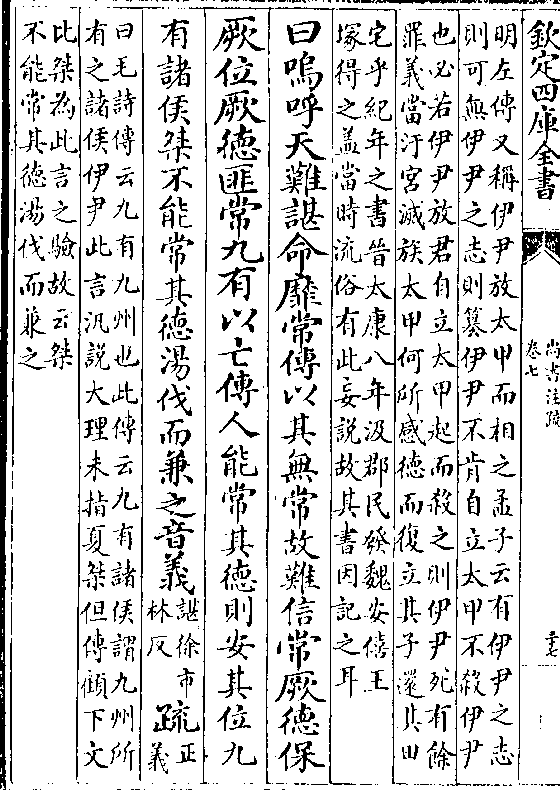 欽定四庫全書
尚書注疏
卷七
十七
明左傳又稱伊尹放太甲而相之孟子云有伊尹之志
則可無伊尹之志則簒伊尹不肯自立太甲不殺伊尹
也必若伊尹放君自立太甲起而殺之則伊尹死有餘
罪義當汙宮滅族太甲何所感德而復立其子還其田
宅乎紀年之書晉太康八年汲郡民發魏安僖王
塚得之葢當時流俗有此妄說故其書因記之耳
曰嗚呼天難諶命靡常傳以其無常故難信常厥德保
厥位厥德匪常九有以亡傳人能常其德則安其位九
有諸侯桀不能常其德湯伐而兼之音義
諶徐市
林反
疏
正
義
曰毛詩傳云九有九州也此傳云九有諸侯謂九州所
有之諸侯伊尹此言汎說大理未指夏桀但傳顧下文
比桀為此言之驗故云桀
不能常其德湯伐而兼之